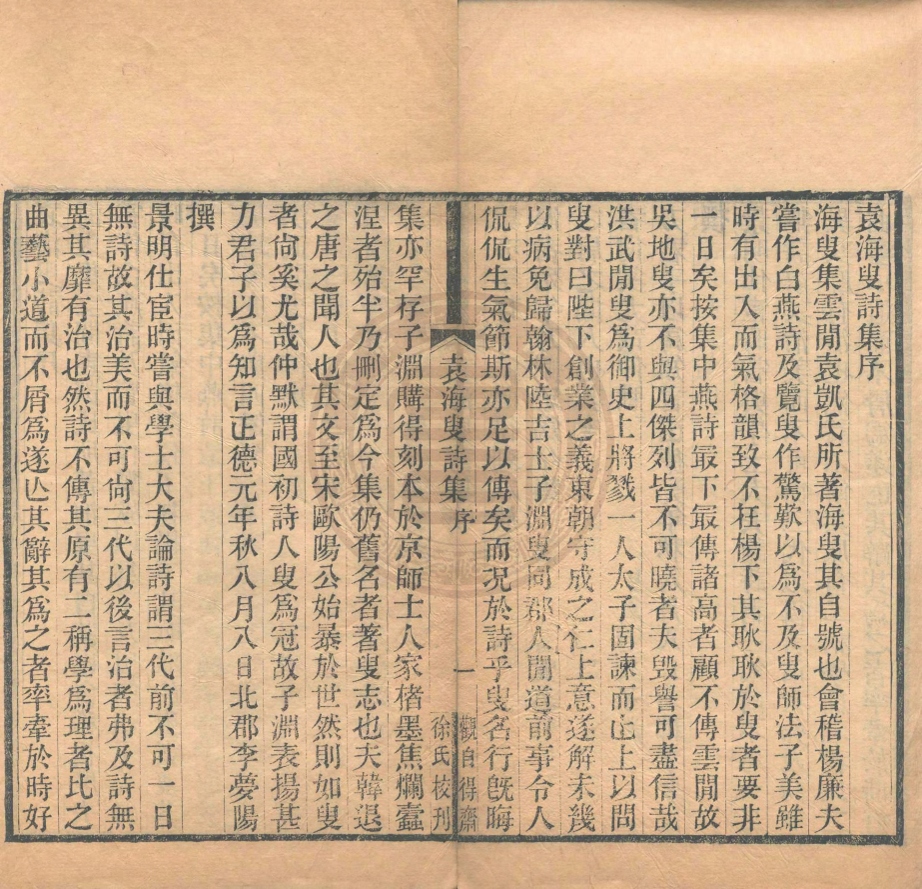 袁海叟詩集序
海叟集雲閒袁凱氏所著海叟其自號也會稽楊廉夫
嘗作白燕詩及覽叟作驚歎以爲不及叟師法子美雖
時有出入而氣格韻致不在楊下其耿耿於叟者要非
一日矣按集中燕詩最下最傳諸高者顧不傳雲閒故
吳地叟亦不與四傑列皆不可曉者夫毀譽可盡信哉
洪武閒叟爲御史上將戮一人太子固諫而止上以問
叟對曰陛下創業之義東朝守成之仁上意遂解未幾
以病免歸翰林陸吉士子淵叟同郡人閒道前事令人
侃侃生氣節斯亦足以傳矣而况於詩乎叟名行旣晦
袁海叟詩集 序 一 觀自得齋
徐氏校刊
集亦罕存子淵購得刻本於京師士人家楮墨焦爛蠹
涅者殆半乃刪定爲今集仍舊名者著叟志也夫韓退
之唐之聞人也其文至宋歐陽公始暴於世然則如叟
者尙奚尤哉仲默謂國初詩人叟爲冠故子淵表揚甚
力君子以爲知言正德元年秋八月八日北郡李夢陽
撰
景明仕宦時嘗與學士大夫論詩謂三代前不可一日
無詩故其治美而不可尙三代以後言治者弗及詩無
異其靡有治也然詩不傳其原有二稱學爲理者比之
曲藝小道而不屑爲遂亾其辭其爲之者率牽於時好